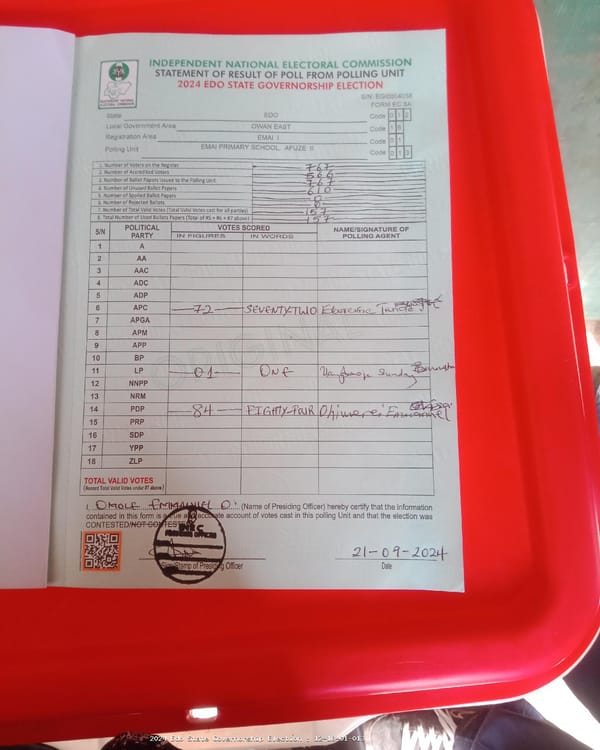 INDEPENDENT NATIONAL ELECTORAL COMMISSION
STATEMENT OF RESULT OF POLL FROM POLLING UNIT
2024 EDO STATE GOVERNORSHIP ELECTION
FORM EC 8A
State EDO Code 0 1 2
Local Government Area OWAN EAST Code 1 6
Registration Area EMAI I Code 0 1
Polling Unit EMAI PRIMARY SCHOOL, AFUZE II Code 0 1 3
1. Number of Voters on the Register 767
2. Number of Accredited Voters
3. Number of Ballot Papers Issued to the Polling Unit 767
4. Number of Unused Ballot Papers 610
5. Number of Spoiled Ballot Papers 0
6. Number of Rejected Ballots 0
7. Number of Total Valid Votes (Total Valid Votes cast for all parties) 157
8. Total Number of Used Ballot Papers (Total of #5 + #6 + #7 above) 157
S/N POLITICAL PARTY VOTES SCORED NAME/SIGNATURE OF POLLING AGENT
IN FIGURES IN WORDS
1 A
2 AA
3 AAC
4 ADC
5 ADP
6 APC 72 SEVENTY-TWO
7 APGA
8 APM
9 APP
10 BP
11 LP 01 ONE Sunday
12 NNPP
13 NRM
14 PDP 84 EIGHTY-FOUR Emmanuel
15 PRP
16 SDP
17 YPP
18 ZLP
ORIGINAL
TOTAL VALID VOTES
(Record Total Valid Votes under #7 above)
I OMOLE EMMANUEL O. (Name of Presiding Officer) hereby certify that the information
contained in this form is a true and accurate account of votes cast in this polling Unit and that the election was
CONTESTED/NOT CONTESTED
INEC
PRESIDING OFFICER
21-09-2024
Sign/Stamp of Presiding Officer Date
2024 Edo State Governorship Election : 12-16-01-013